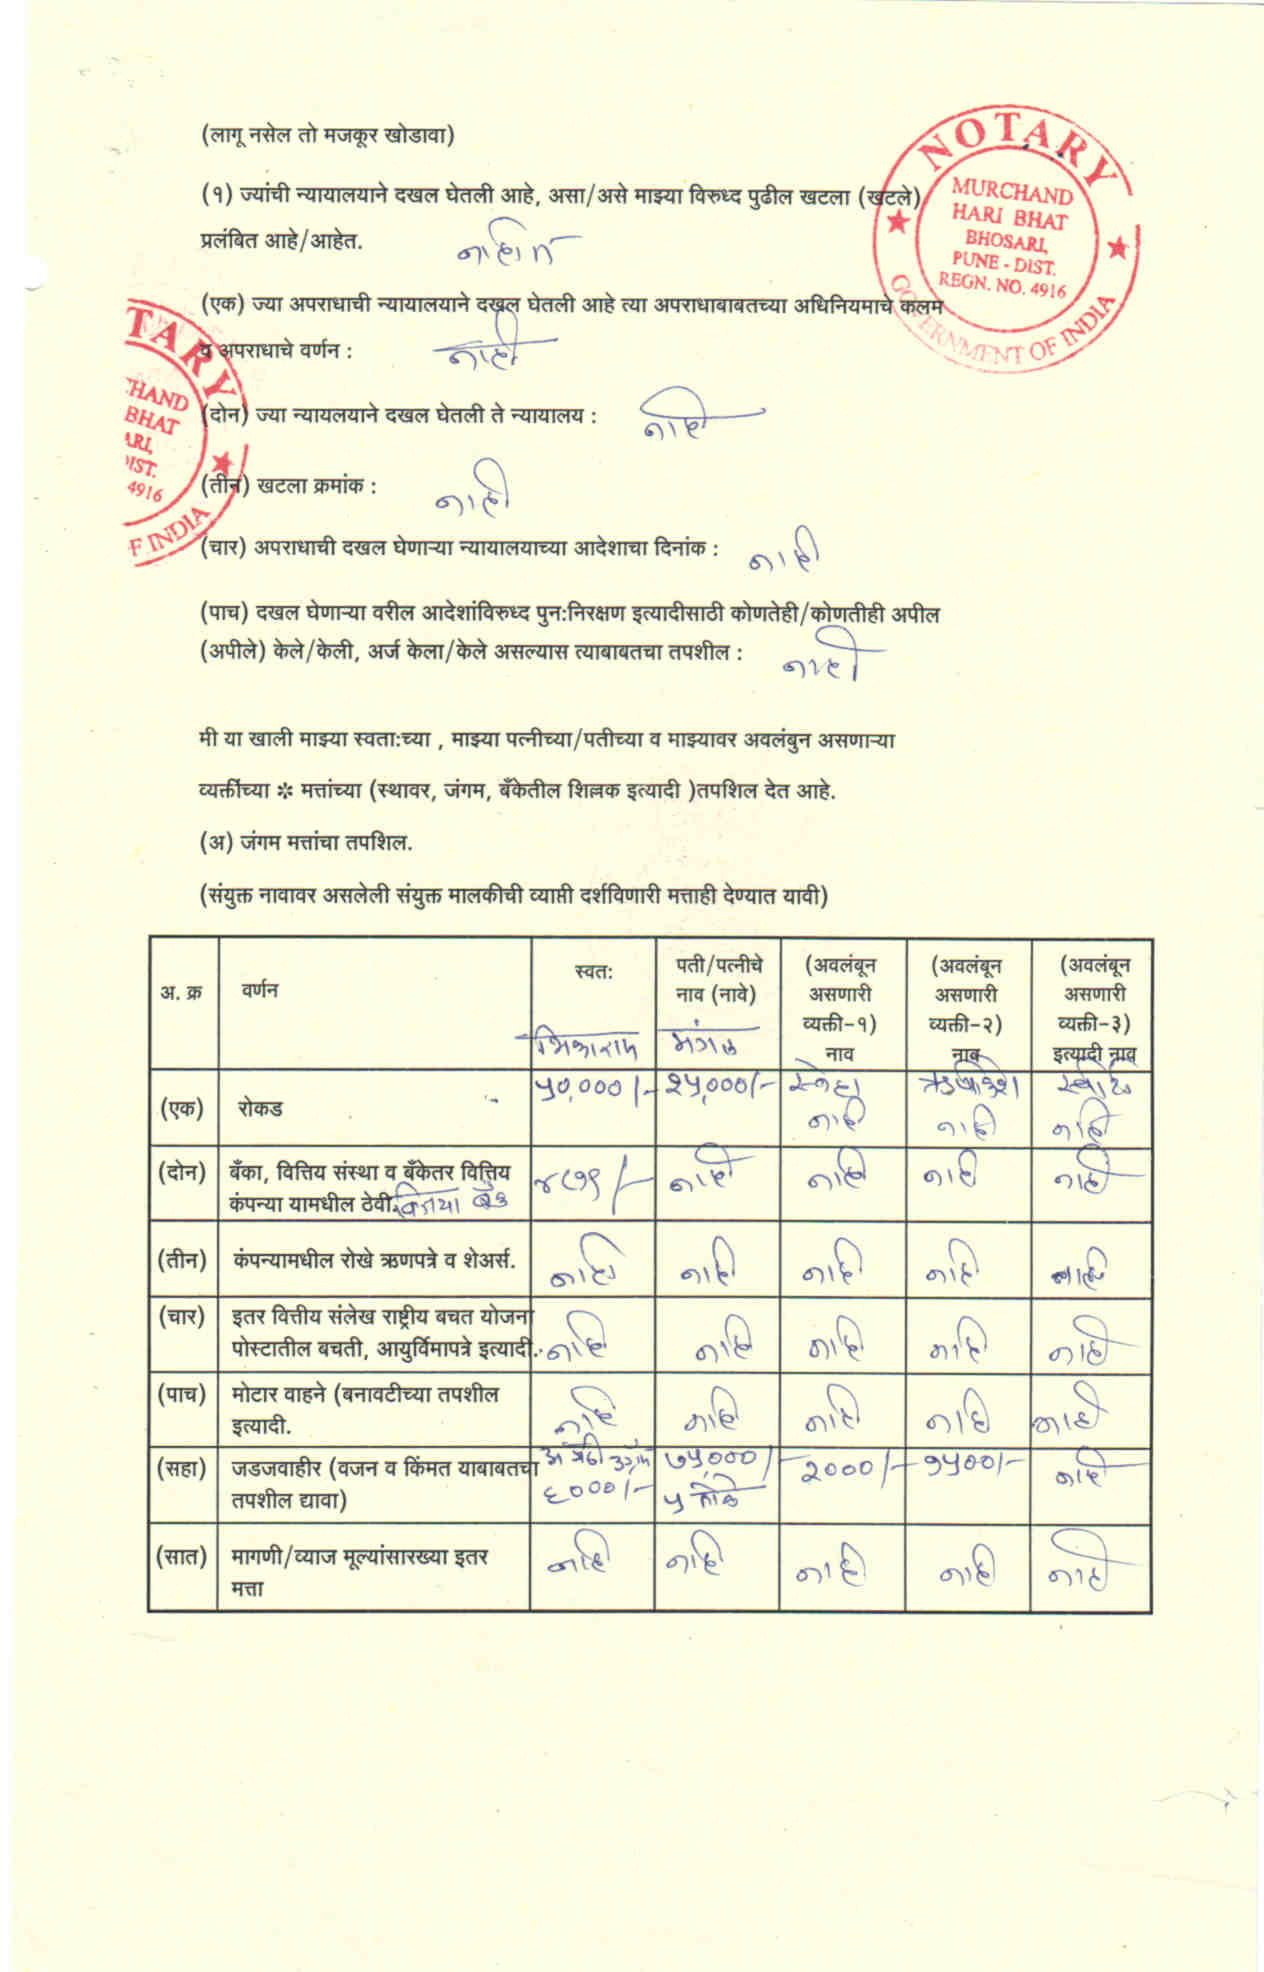 (लागू नसेल तो मजकूर खोडावा)
NOTARY
MURCHAND
HARI BHAT
BHOSARI,
PUNE - DIST.
REGN. NO. 4916
GOVERNMENT OF INDIA
(१) ज्यांची न्यायालयाने दखल घेतली आहे, असा/असे माझ्या विरुध्द पुढील खटला (खटले)
प्रलंबित आहे/आहेत. नाहीत
(एक) ज्या अपराधाची न्यायालयाने दखल घेतली आहे त्या अपराधाबाबतच्या अधिनियमाचे कलम
व अपराधाचे वर्णन : नाही
TARY
CHAND
BHAT
ARI,
DIST.
4916
F INDIA
(दोन) ज्या न्यायलयाने दखल घेतली ते न्यायालय : नाही
(तीन) खटला क्रमांक : नाही
(चार) अपराधाची दखल घेणाऱ्या न्यायालयाच्या आदेशाचा दिनांक : नाही
(पाच) दखल घेणाऱ्या वरील आदेशांविरुध्द पुन:निरक्षण इत्यादीसाठी कोणतेही/कोणतीही अपील
(अपीले) केले/केली, अर्ज केला/केले असल्यास त्याबाबतचा तपशील : नाही
मी या खाली माझ्या स्वता:च्या , माझ्या पत्नीच्या/पतीच्या व माझ्यावर अवलंबुन असणाऱ्या
व्यक्तींच्या ✼ मत्तांच्या (स्थावर, जंगम, बँकेतील शिल्लक इत्यादी )तपशिल देत आहे.
(अ) जंगम मत्तांचा तपशिल.
(संयुक्त नावावर असलेली संयुक्त मालकीची व्याप्ती दर्शविणारी मत्ताही देण्यात यावी)
अ. क्र वर्णन स्वत: पती/पत्नीचे (अवलंबून (अवलंबून (अवलंबून
नाव (नावे) असणारी असणारी असणारी
व्यक्ती-१) व्यक्ती-२) व्यक्ती-३)
भिकाराम मंगल नाव नाव इत्यादी नाव
(एक) रोकड ५०,०००/- २५,०००/- स्नेहा
नाही नाही नाही
(दोन) बँका, वित्तिय संस्था व बँकेतर वित्तिय नाही नाही नाही नाही
कंपन्या यामधील ठेवी. विजया बँक
(तीन) कंपन्यामधील रोखे ऋणपत्रे व शेअर्स. नाही नाही नाही नाही नाही
(चार) इतर वित्तीय संलेख राष्ट्रीय बचत योजना
पोस्टातील बचती, आयुर्विमापत्रे इत्यादी. नाही नाही नाही नाही नाही
(पाच) मोटार वाहने (बनावटीच्या तपशील
इत्यादी. नाही नाही नाही नाही नाही
(सहा) जडजवाहीर (वजन व किंमत याबाबतचा ७५,०००/- २०००/- १५००/- नाही
तपशील द्यावा) ६०००/- ५ तोळे
(सात) मागणी/व्याज मूल्यांसारख्या इतर नाही नाही नाही नाही नाही
मत्ता